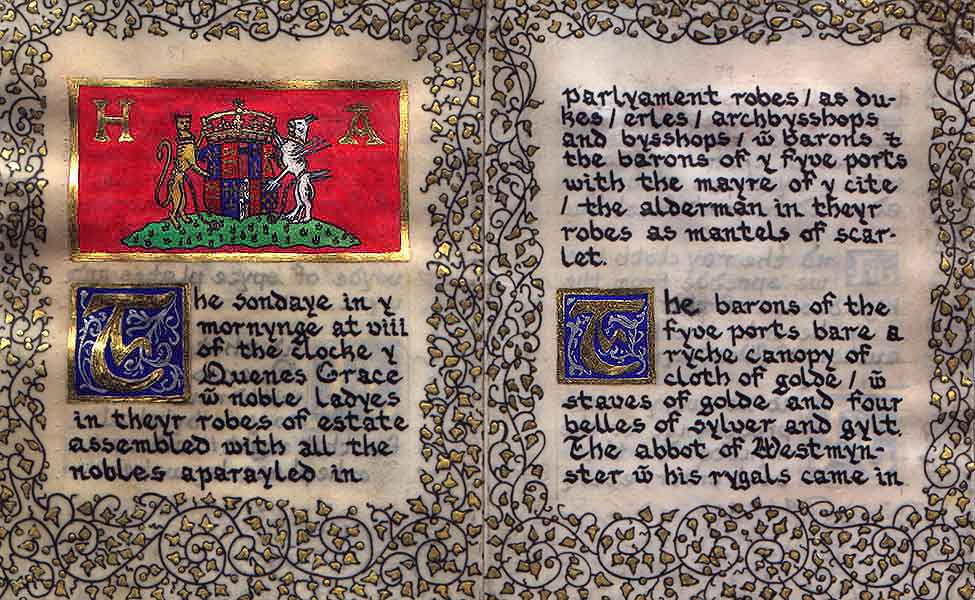 H A
The Sondaye in y
mornynge at viii
of the clocke y
Quenes Grace
w̄ noble ladyes
in theyr robes of estate
assembled with all the
nobles aparayled in
parlyament robes / as du-
kes / erles / archbysshops
and bysshops / w̄ barons &
the barons of y fyve ports
with the mayre of y cite
/ the alderman in theyr
robes as mantels of scar-
let.
The barons of the
fyve ports bare a
ryche canopy of
cloth of golde / w̄
staves of golde and four
belles of sylver and gylt.
The abbot of Westmyn-
ster w̄ his rygals came in